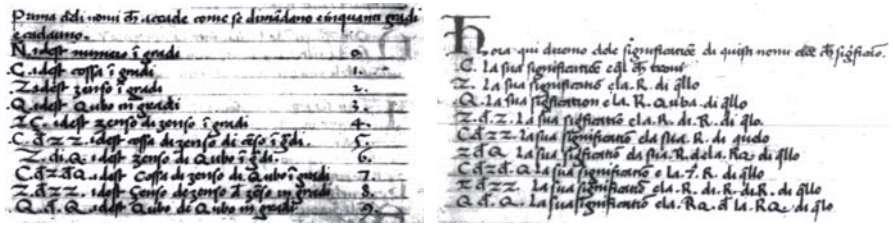 Prima dedi nomi ch accade come se dimādano e inquanti gradi
e cadauno.
N. idest numero ī gradi 0.
C. idest cossa ī gradi 1.
Z. idest zenso ī gradi 2.
Q. idest Qubo in gradi 3.
Z C. idest zenso di zenso ī gradi 4.
C. đ Z Z idest cossa di zenso di c̄so ī gdi. 5.
Z. di Q. idest zenso di Qubo ī gdi. 6.
C đ Z đ Q. idest Cossa di zenso di Qubo ī gradi 7
Z. đ Z Z. idest Censo de zenso đ zēso in gradi 8.
Q. đ. Q. idest Qubo di Qubo in gradi 9.
Hora qui diremo dele significatiōe di quisti nomi
C. La sua significatiōe
Z. La sua significatiōe e la. R. di q̄llo
Q. La sua signification e la. R. Quba. di q̄llo
Z. đ. Z. La sua significatiō e la. R. di. R. di q̄lo.
C đ Z Z. La sua significatiō e la sua. R. di quelo
Z đ Q. La sua significatiō e la sua. R. dela. R Q. di q̄llo
C đ. Q. La sua significatiō e la. R. di q̄llo
Z đ Z Z. La sua significatiō e la. R. di. R. de. R. di q̄llo
Q. đ. Q. La sua significatiō e la. R Q. đ la. R Q. di q̄lo